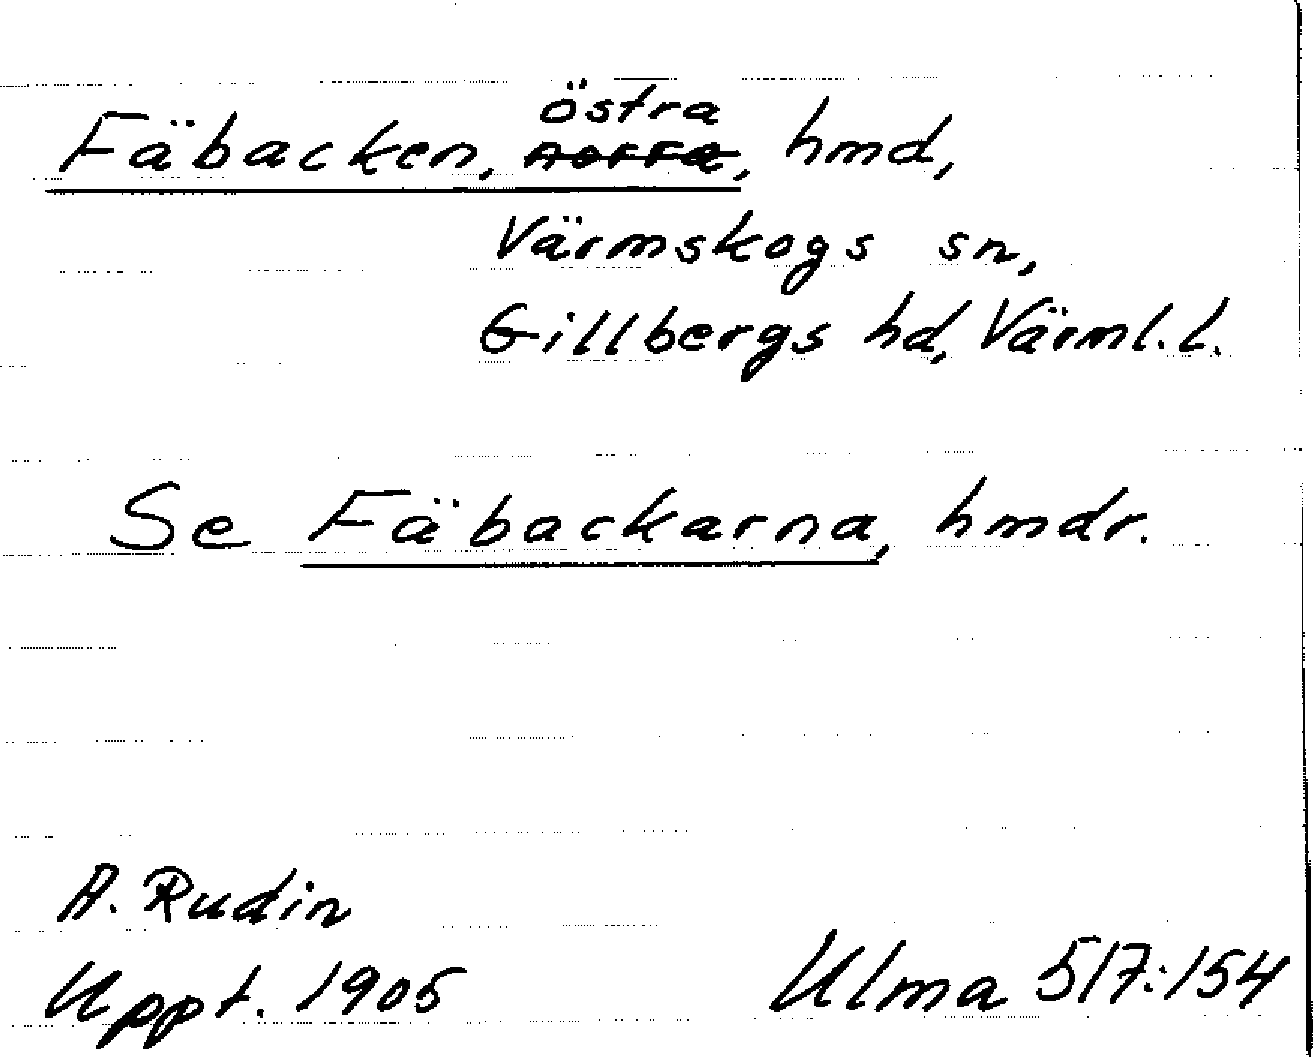 östra
Fäbacken, norra, hmd,
Värmskogs sn,
Gillbergs hd, Värml. l.
Se Fäbackarna, hmdr.
A. Rudin
Uppt. 1905
Ulma 517:154